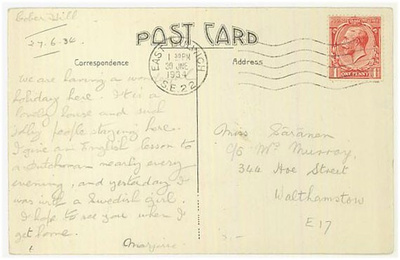 Ember Hill
27.6.34
POST CARD
Correspondence
Address
EAST DULWICH
1 30PM
30 JNE
1934
S.E.22
ONE PENNY
We are having a wonderful
holiday here. It is a
lovely house and such
jolly people staying here.
I give an English lesson to
a Dutchman nearly every
evening, and yesterday I
was with a Swedish girl.
I hope to see you when I
get home.
Marjorie
Miss Saranen
c/o Mrs Murray,
344 Hoe Street
Walthamstow
E 17